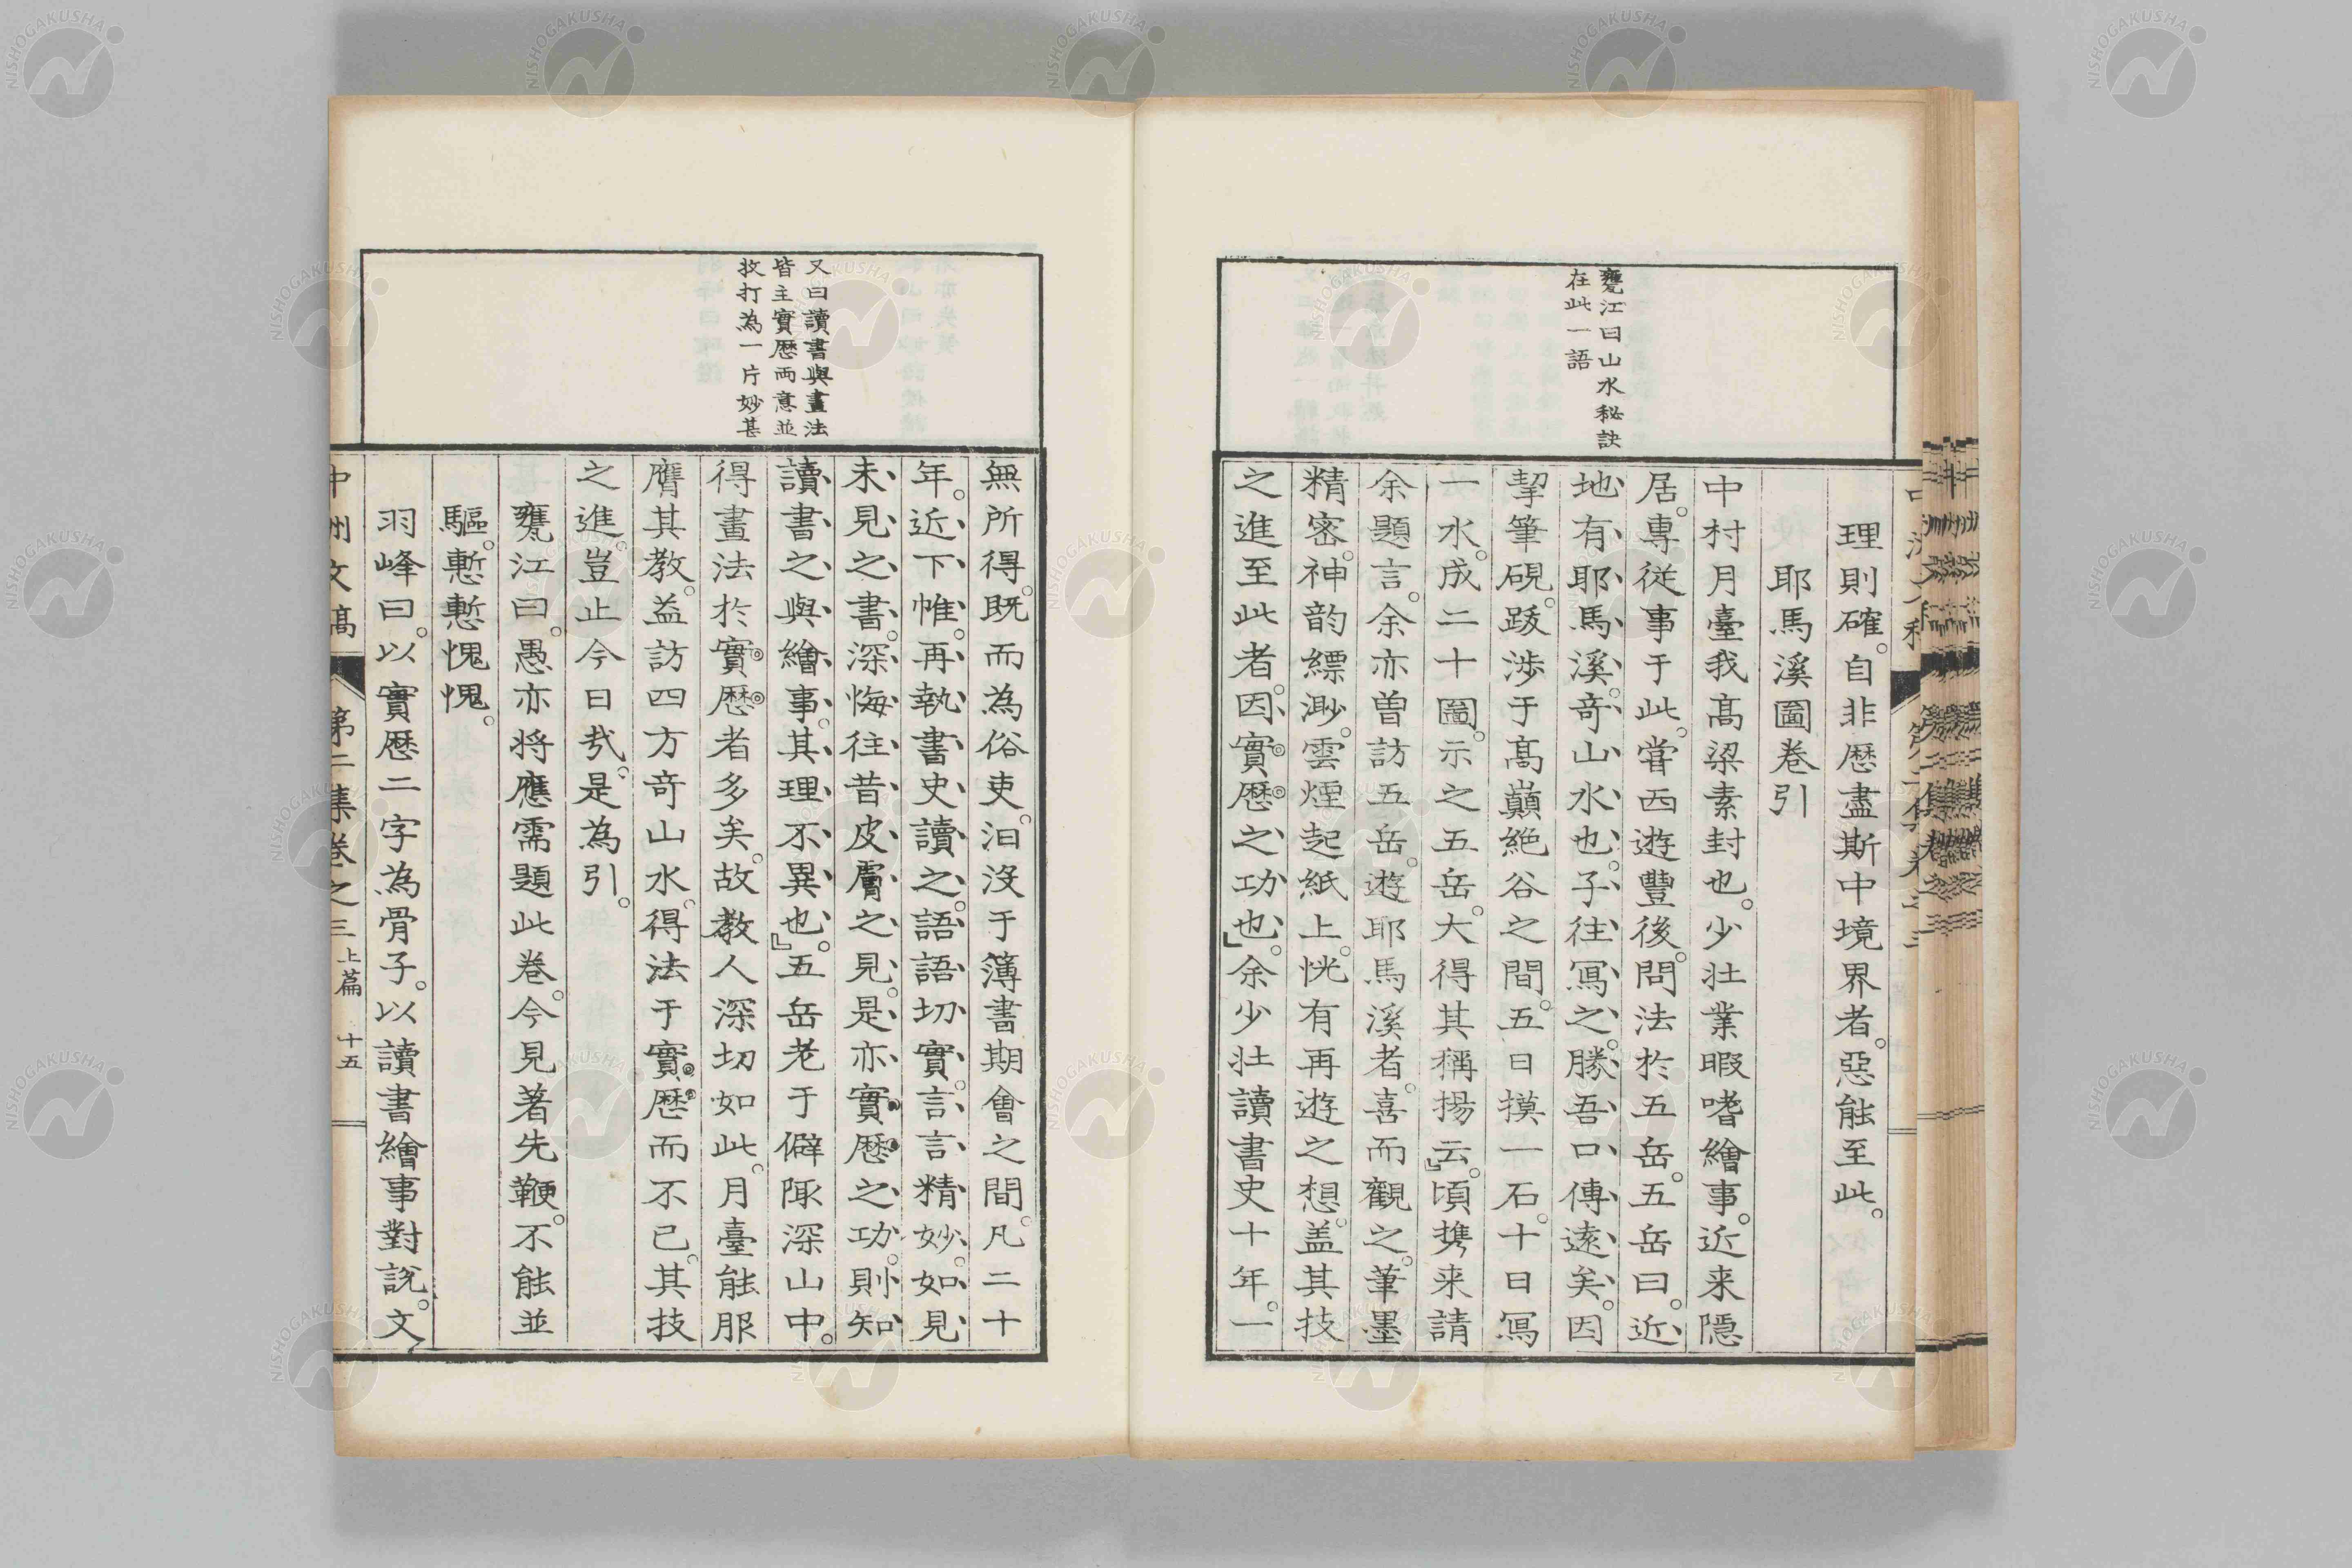 甕江曰山水秘訣
在此一語
理則確。自非歴盡斯中境界者。惡能至此。
耶馬溪圖巻引
中村月臺我髙梁素封也。少壯業暇嗜繪事。近来隱
居。專従事于此。嘗西遊豐後。問法於五岳。五岳曰。近
地有耶馬溪。奇山水也。子往冩之。勝吾口傳遠矣。因
挈筆硯。跋渉于髙巔絶谷之間。五日摸一石。十日冩
一水。成二十圖。示之五岳。大得其稱揚云』。頃携来請
余題言。余亦曽訪五岳。遊耶馬溪者。喜而觀之。筆墨
精密。神韵縹渺。雲煙起紙上。恍有再遊之想。盖其技
之進至此者。因實歴之功也』。余少壯讀書史十年。一
又曰讀書與畫法
皆主實歴両意並
放打為一片妙甚
無所得。既而為俗吏。汩沒于簿書期會之間。凡二十
年。近下帷。再執書史讀之。語語切實。言言精妙。如見
未見之書。深悔往昔皮膚之見。是亦實歴之功。則知
讀書之與繪事。其理不異也』。五岳老于僻陬深山中。
得畫法於實歴者多矣。故教人深切如此。月臺能服
膺其教。益訪四方奇山水。得法于實歴而不已。其技
之進。豈止今日㢤。是為引。
甕江曰。愚亦将應需題此巻。今見著先鞭。不能並
驅。慙慙愧愧。
羽峰曰。以實歴二字為骨子。以讀書繪事對說。文
中洲文稿
第二集巻之三 上篇 十五
NISHOGAKUSHA